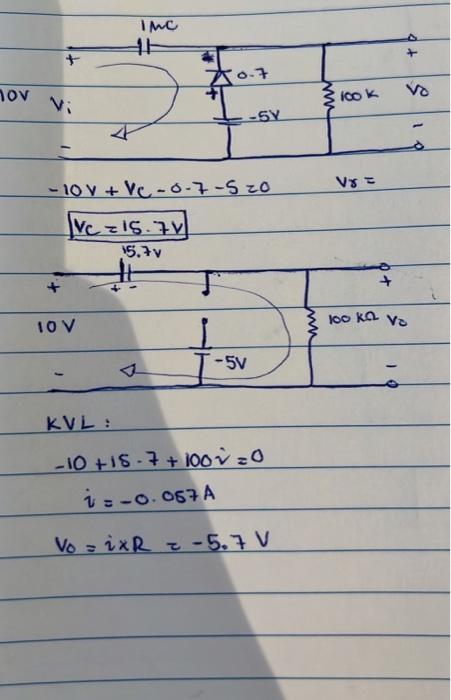 1MC
+ * + 0.7
10V Vi 100K Vo
+ -5V
- -
-10V + Vc - 0.7 - 5 = 0 Vr =
Vc = 15.7V
15.7V
+ + - +
10V 100 KΩ Vo
- -5V -
KVL :
-10 + 15.7 + 100i = 0
i = -0.057A
Vo = i×R = -5.7 V